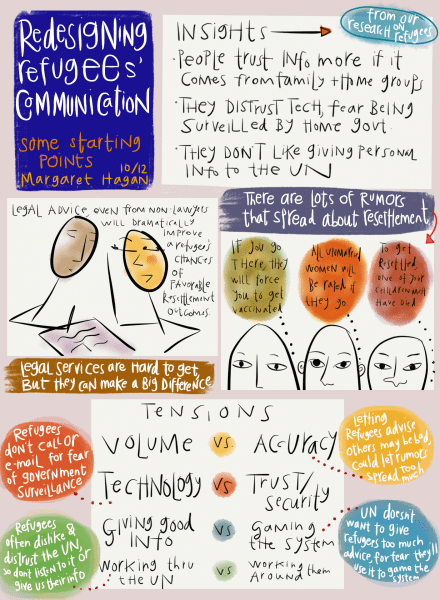 Redesigning
refugees'
Communication
some starting
points
10/12
Margaret Hagan
Insights
from our
research on
refugees
· People trust info more if it
comes from family + home groups
· They distrust tech, fear being
surveilled by home govt.
· They don't like giving personal
info to the UN
Legal advice, even from non-lawyers
will dramatically
improve
a refugee's
chances
of
favorable
resettlement
outcomes.
Legal services are hard to get,
But they can make a Big Difference
There are lots of rumors
that spread about resettlement
If you go
there they
will force
you to get
vaccinated
All unmarried
women will
be raped if
they go
To get
resettled,
one of your
children must
have died
Tensions
Volume vs Accuracy
Technology vs Trust/
security
Giving good
info
vs
Gaming
the system
working thru
the UN
vs
working
Around them
Refugees
don't call or
e-mail for fear
of government
surveillance
Letting
Refugees advise
others may be bad,
could let rumors
spread too
much
Refugees
often dislike &
distrust the UN,
so don't listen to it or
give us their info
UN doesn't
want to give
refugees too much
advice, for fear they'll
use it to game the
system